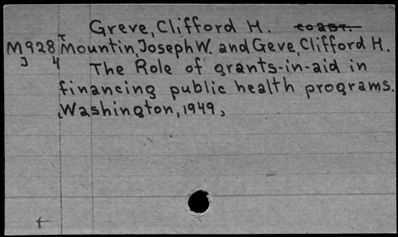 Greve, Clifford H.
M928 Mountin, Joseph W. and Geve, Clifford H.
J 4 The Role of grants-in-aid in
financing public health programs.
Washington, 1949,